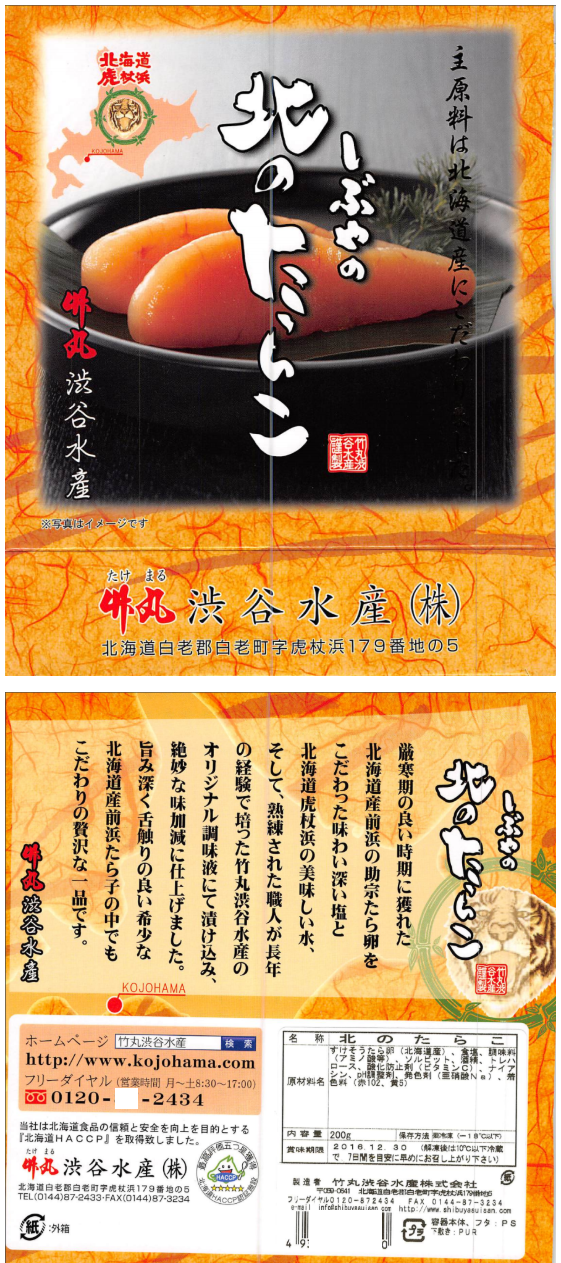 北海道
虎杖浜
KOJOHAMA
主原料は北海道産にこだわりました。
しぶやの
北のたらこ
竹丸
渋谷水産
竹丸渋
谷水産
謹製
※写真はイメージです
たけ まる
竹丸 渋谷水産(株)
北海道白老郡白老町字虎杖浜179番地の5
しぶやの
北のたらこ
竹丸渋
谷水産
謹製
厳寒期の良い時期に獲れた
北海道産前浜の助宗たら卵を
こだわった味わい深い塩と
北海道虎杖浜の美味しい水、
そして、熟練された職人が長年
の経験で培った竹丸渋谷水産の
オリジナル調味液にて漬け込み、
絶妙な味加減に仕上げました。
旨み深く舌触りの良い希少な
北海道産前浜たら子の中でも
こだわりの贅沢な一品です。
竹丸 渋谷水産
KOJOHAMA
ホームページ 竹丸渋谷水産 検索
http://www.kojohama.com
フリーダイヤル (営業時間 月〜土8:30〜17:00)
0120- -2434
当社は北海道食品の信頼と安全を向上を目的とする
『北海道HACCP』を取得致しました。
たけ まる
竹丸 渋谷水産(株)
北海道白老郡白老町字虎杖浜179番地の5
TEL(0144)87-2433・FAX(0144)87-3234
HACCP
紙 :外箱
名称 北のたらこ
原材料名 すけそうたら卵(北海道産)、食塩、調味料
(アミノ酸等)、ソルビット、酒精、トレハ
ロース、酸化防止剤(ビタミンC)、ナイア
シン、pH調整剤、発色剤(亜硝酸Na)、着
色料(赤102、黄5)
内容量 200g 保存方法 要冷凍(-18℃以下)
賞味期限 2016.12.30 (解凍後は10℃以下冷蔵
で 7日間を目安に早めにお召し上がり下さい)
製造者 竹丸渋谷水産株式会社
〒059-0641 北海道白老郡白老町字虎杖浜179番地5
フリーダイヤル0120-872434 FAX 0144-87-3234
e-mail info@shibuyasuisan.com http://www.shibuyasuisan.com
プラ 容器本体、フタ:PS
下敷き:PUR